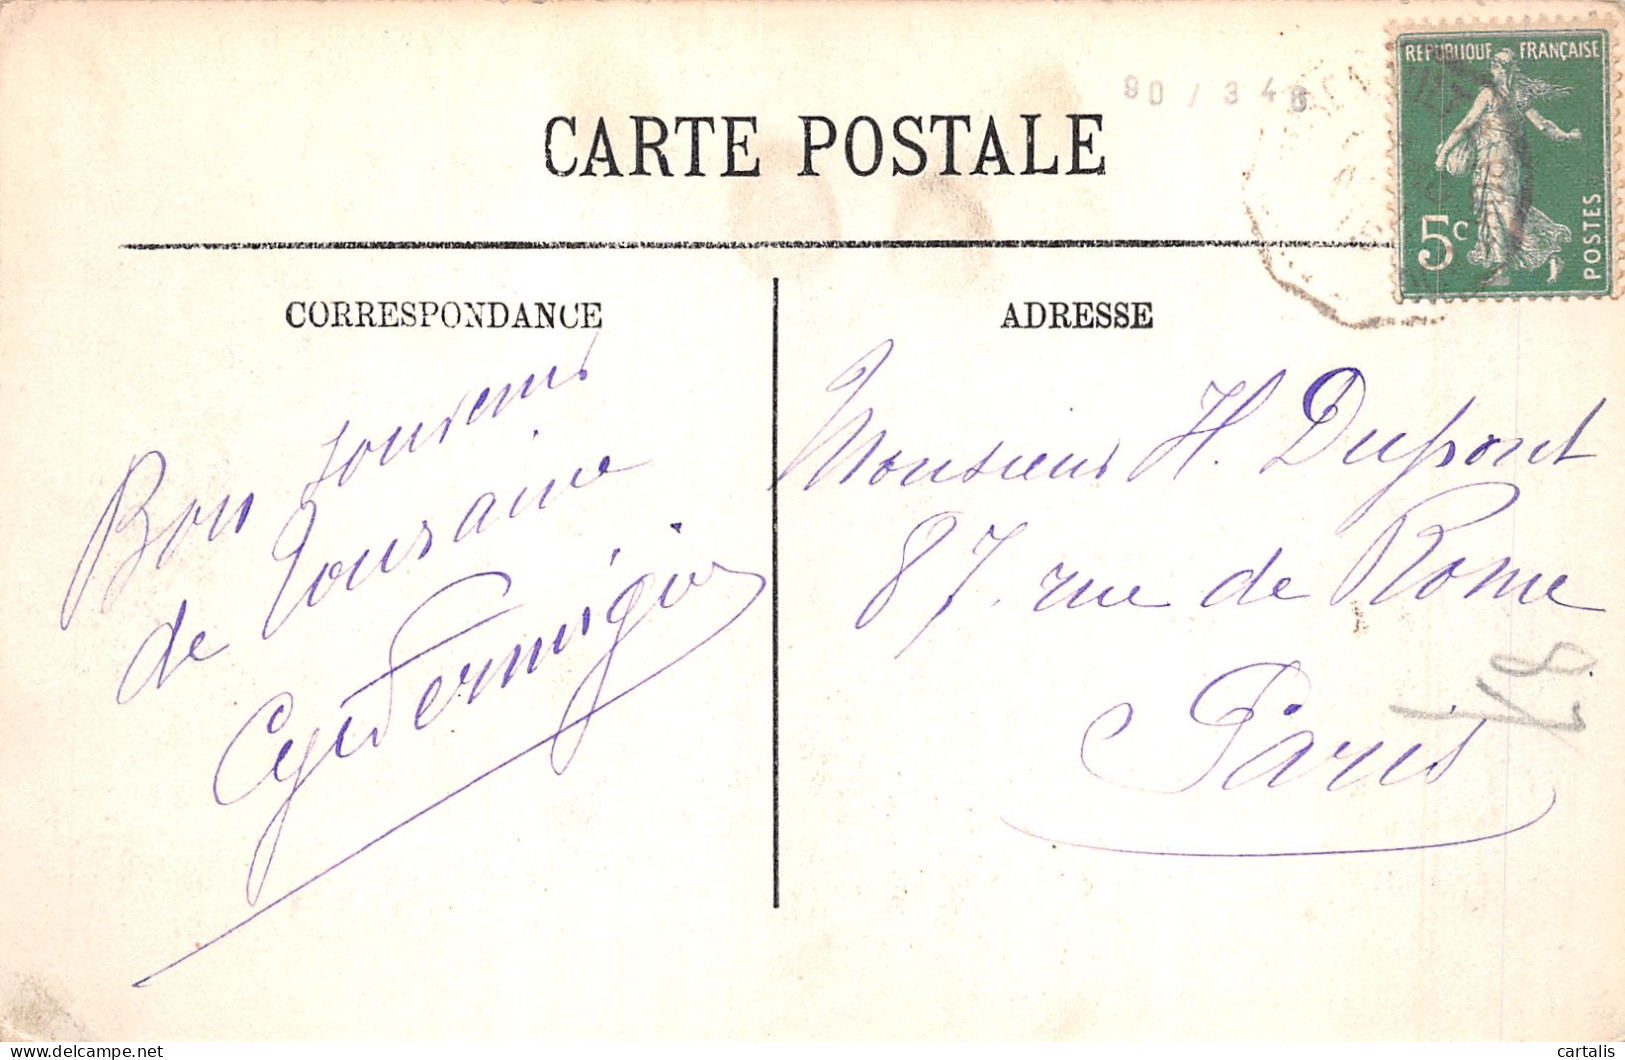 CARTE POSTALE
90 / 3 48
REPUBLIQUE FRANÇAISE
5c
POSTES
CORRESPONDANCE
ADRESSE
Bon souvenir
de Touraine
Monsieur H. Dupont
87. rue de Rome
Paris
cartalis